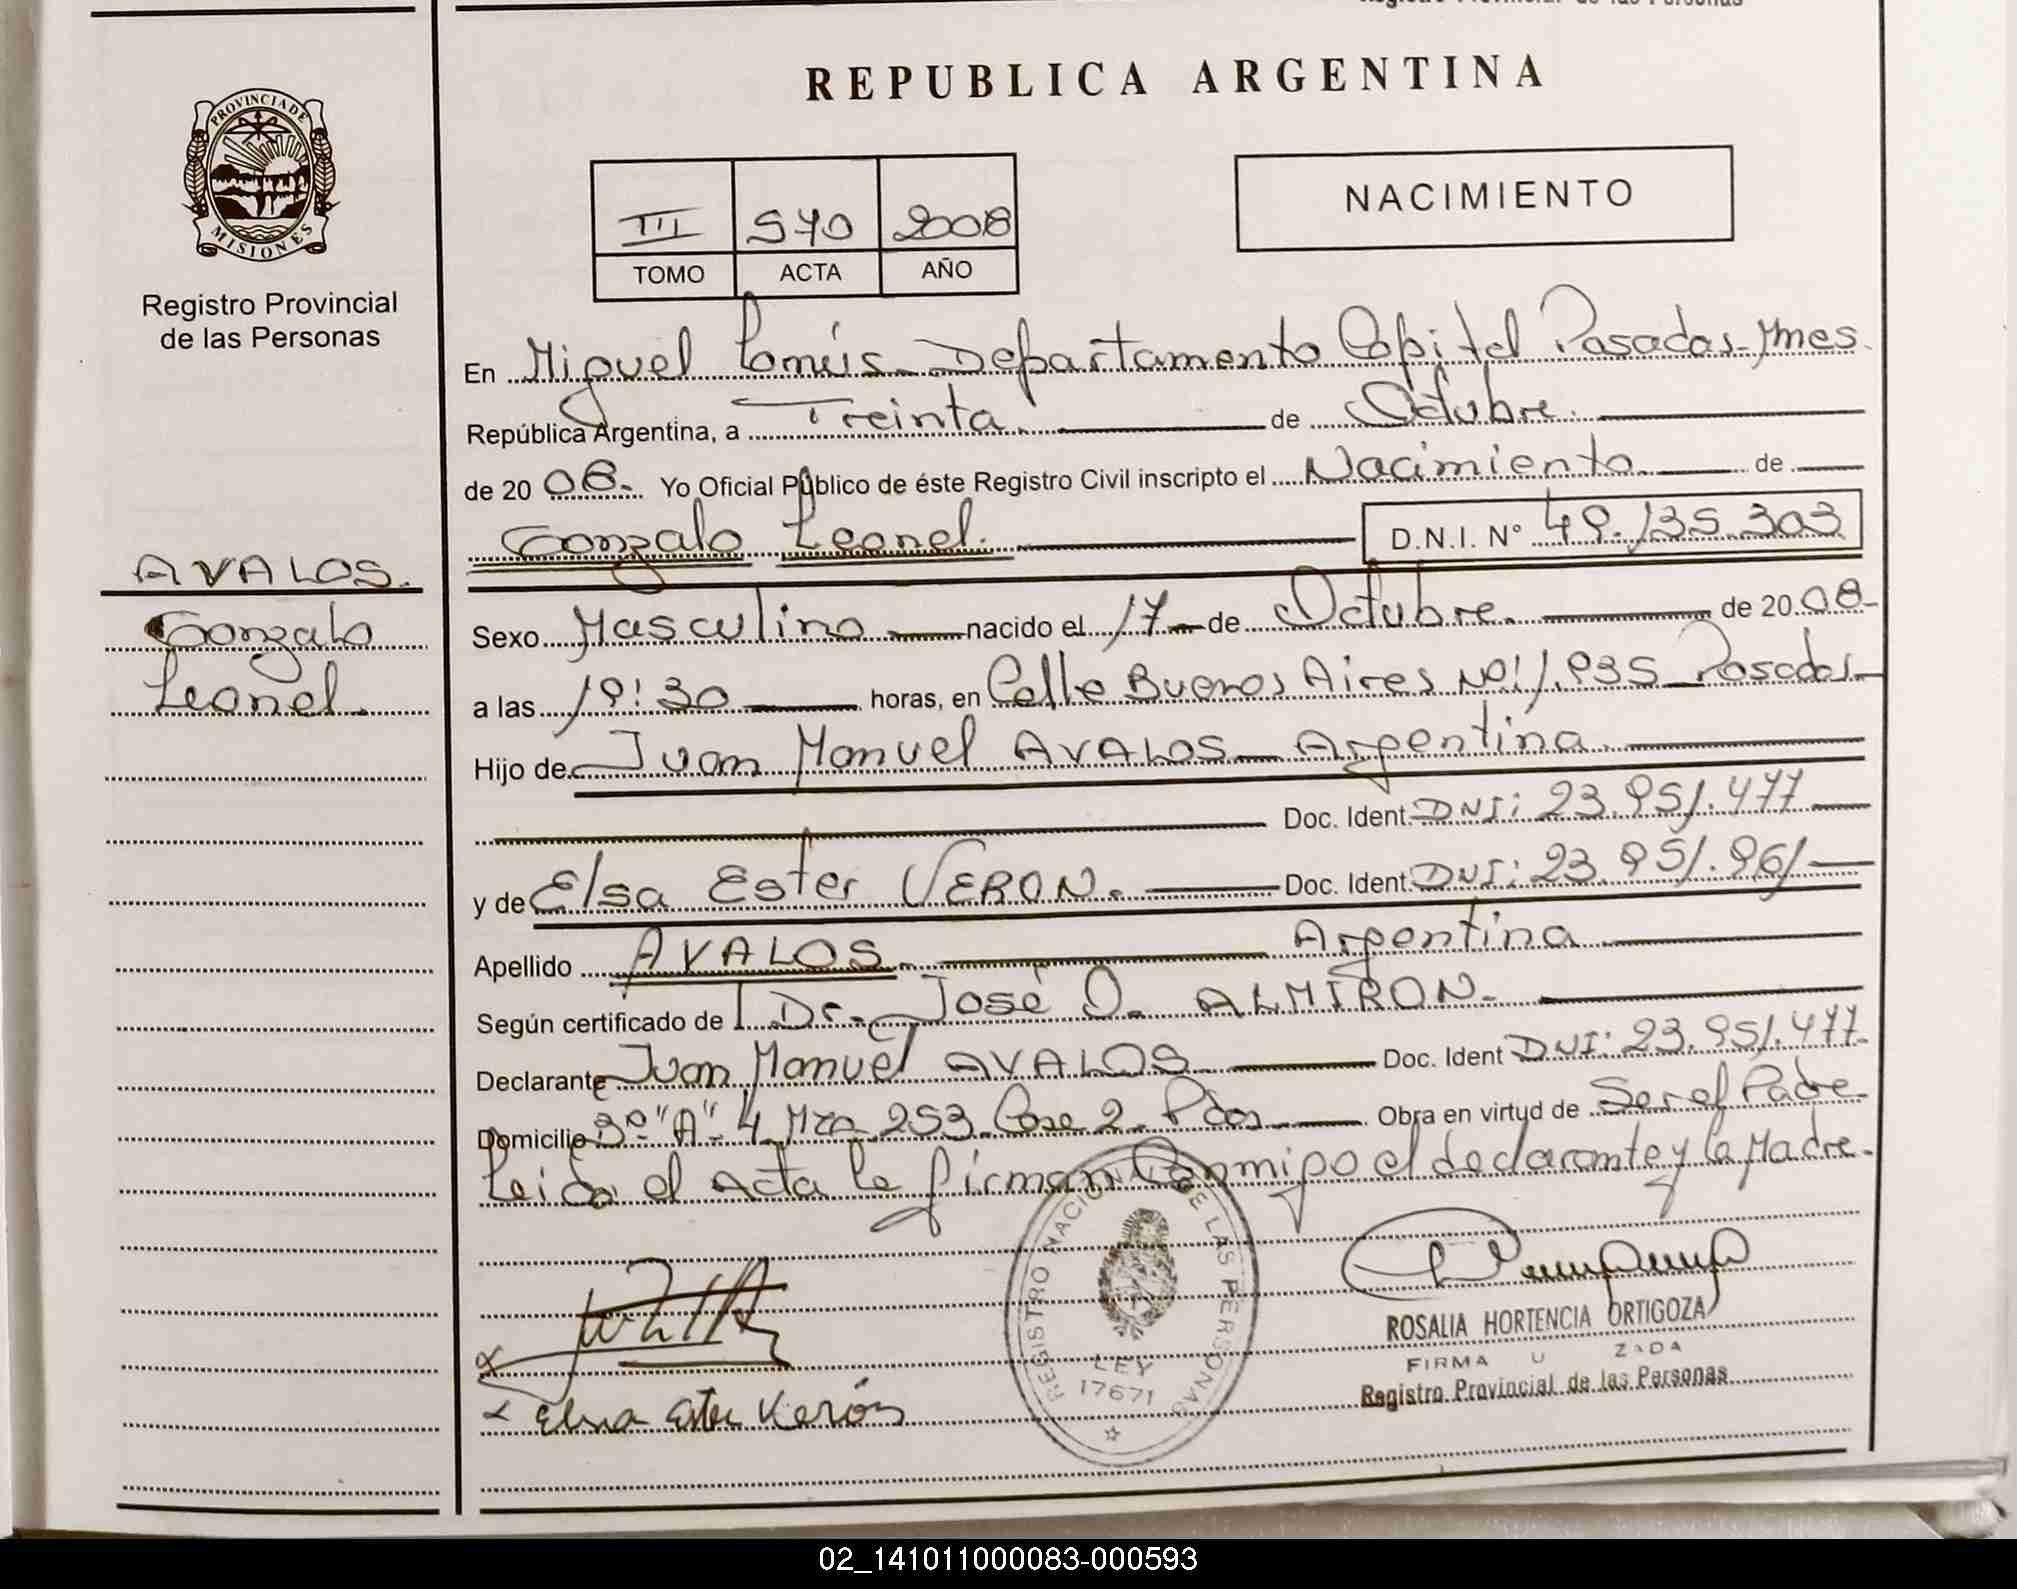 Registro Provincial de las Personas
REPUBLICA ARGENTINA
PROVINCIA DE
MISIONES
Registro Provincial
de las Personas
III 570 2008
TOMO ACTA AÑO
NACIMIENTO
En Miguel Lanús - Departamento Capital Posadas - Mnes.
República Argentina, a Treinta. de Octubre.
de 20 08. Yo Oficial Público de éste Registro Civil inscripto el Nacimiento de
Gonzalo Leonel. D.N.I. Nº 49.135.303
AVALOS.
Gonzalo
Leonel.
Sexo Masculino nacido el 17 de Octubre. de 20 08-
a las 19:30 horas, en Calle Buenos Aires Nº: 1.935 - Posadas-
Hijo de Juan Manuel AVALOS - Argentina.
Doc. Ident. DNI: 23.951.477
y de Elsa Ester VERON. Doc. Ident. DNI: 23.951.961
Apellido AVALOS. Argentina
Según certificado de Dr. José O. ALMIRON.
Declarante Juan Manuel AVALOS Doc. Ident DNI: 23.951.477.
Domicilio 3º "A" 4 Mza 253 Casa 2 - Pdas Obra en virtud de Ser el Padre
Leida el Acta la firman Conmigo el declarante y la Madre.
REGISTRO NACIONAL DE LAS PERSONAS
LEY
17671
ROSALIA HORTENCIA ORTIGOZA
FIRMA
Registro Provincial de las Personas
Elsa Ester Verón
02_141011000083-000593